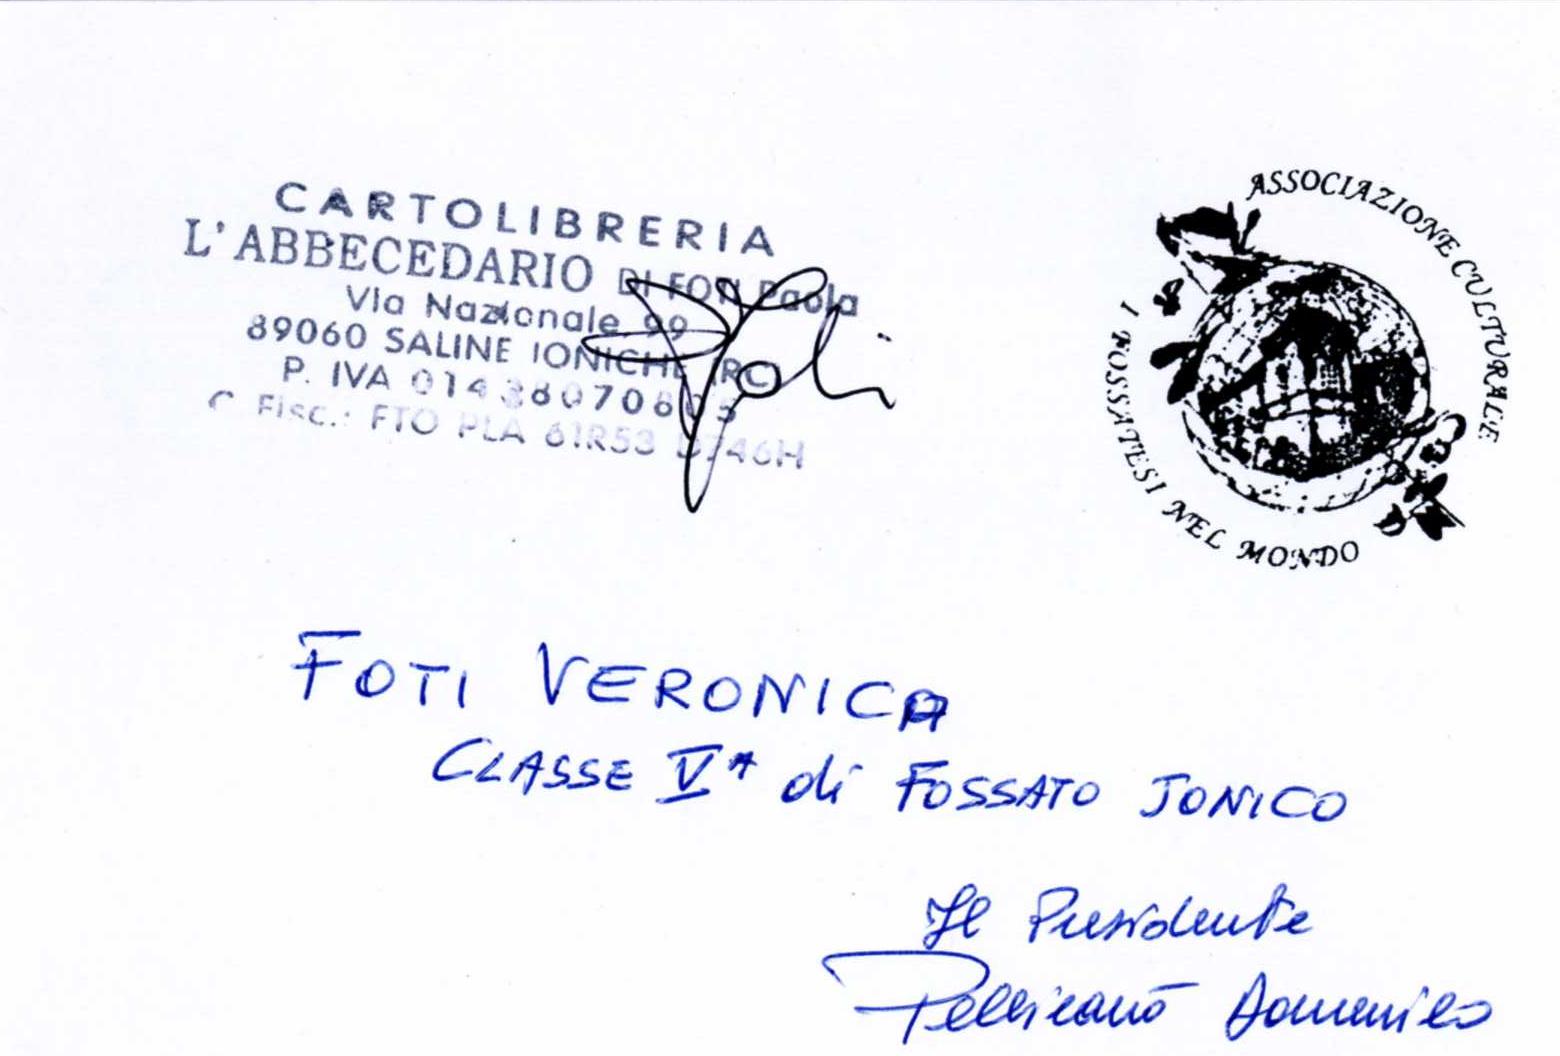 CARTOLIBRERIA
L'ABBECEDARIO DI FOTI Paola
Via Nazionale 99
89060 SALINE IONICHE (RC)
P. IVA 01438070805
C. Fisc.: FTO PLA 61R53 D746H
Foti
ASSOCIAZIONE CULTURALE
I FOSSATESI NEL MONDO
FOTI VERONICA
CLASSE Vª di FOSSATO JONICO
Il Presidente
Pellicanò Domenico